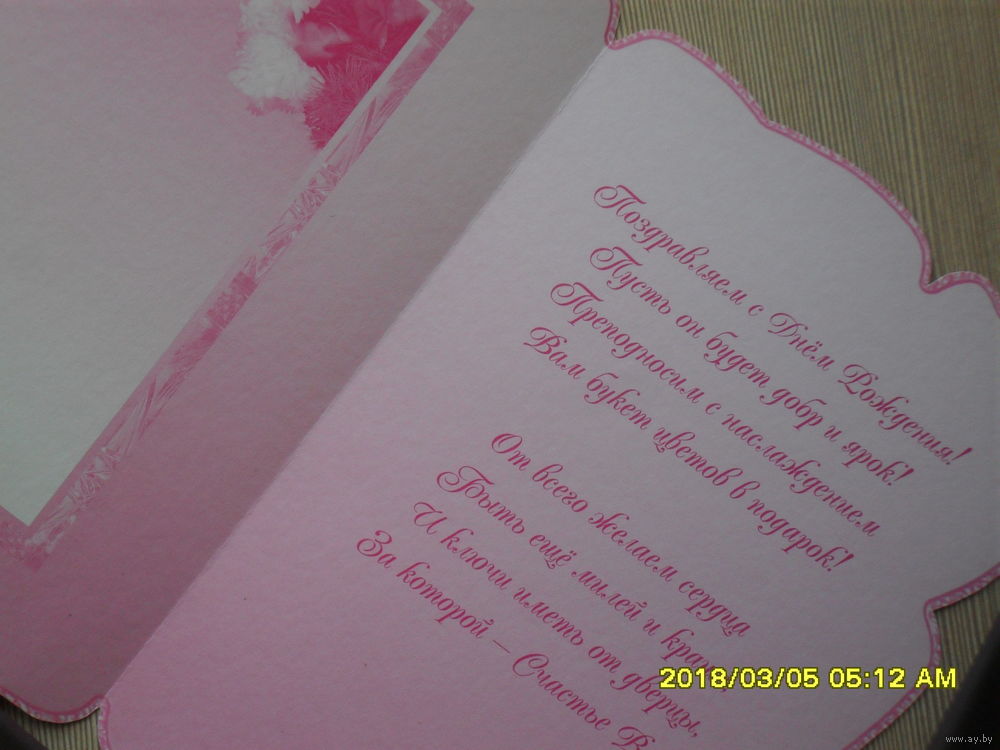 Поздравляем с Днём Рождения!
Пусть он будет добр и ярок!
Преподносим с наслаждением
Вам букет цветов в подарок!
От всего желаем сердца
Быть ещё милей и
И ключи иметь от дверцы,
За которой – Счастье
2018/03/05 05:12 AM
www.ay.by